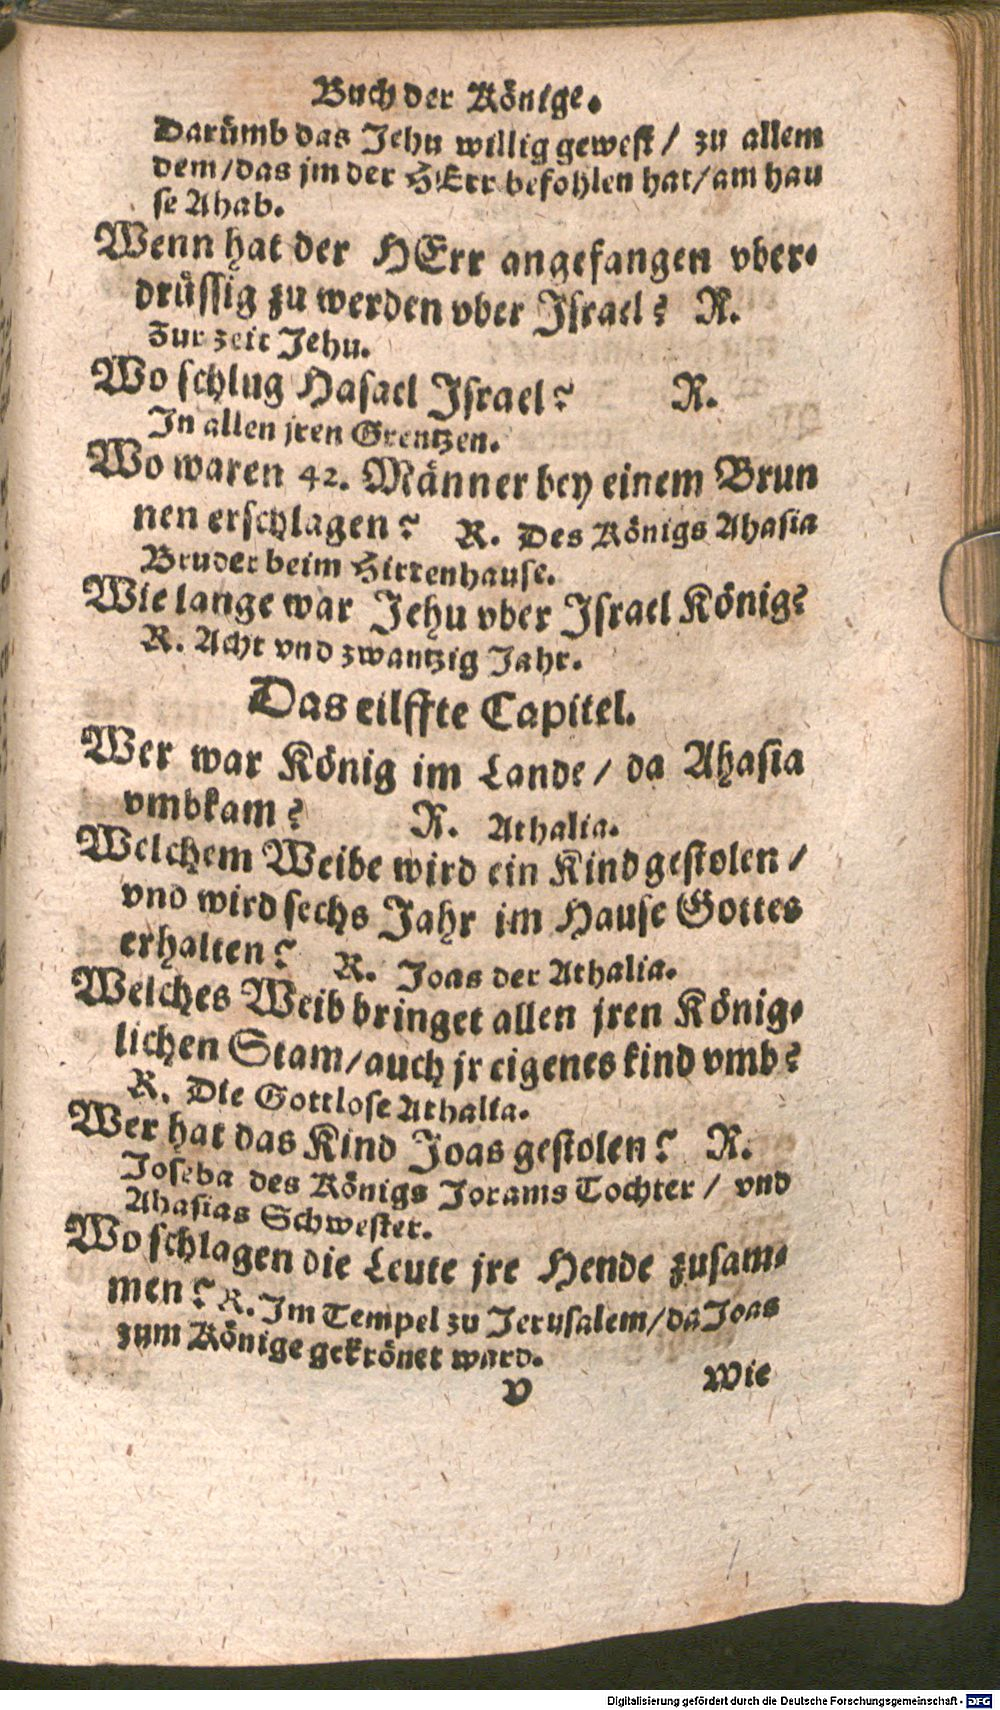 Buch der Könige.
Darümb das Jehu willig gewest / zu allem
dem / das jm der HErr befohlen hat / am hau
se Ahab.
Wenn hat der HErr angefangen vber-
drüssig zu werden vber Israel? R.
Zur zeit Jehu.
Wo schlug Hasael Israel? R.
In allen jren Grentzen.
Wo waren 42. Männer bey einem Brun
nen erschlagen? R. Des Königs Ahasia
Bruder beim Hirtenhause.
Wie lange war Jehu vber Israel König?
R. Acht vnd zwantzig Jahr.
Das eilffte Capitel.
Wer war König im Lande / da Ahasia
vmbkam? R. Athalia.
Welchem Weibe wird ein Kind gestolen /
vnd wird sechs Jahr im Hause Gottes
erhalten? R. Joas der Athalia.
Welches Weib bringet allen jren König-
lichen Stam / auch jr eigenes kind vmb?
R. Die Gottlose Athalia.
Wer hat das Kind Joas gestolen? R.
Joseba des Königs Jorams Tochter / vnd
Ahasias Schwester.
Wo schlagen die Leute jre Hende zusam-
men? R. Im Tempel zu Jerusalem / da Joas
zum Könige gekrönet ward.
V Wie
Digitalisierung gefördert durch die Deutsche Forschungsgemeinschaft - DFG